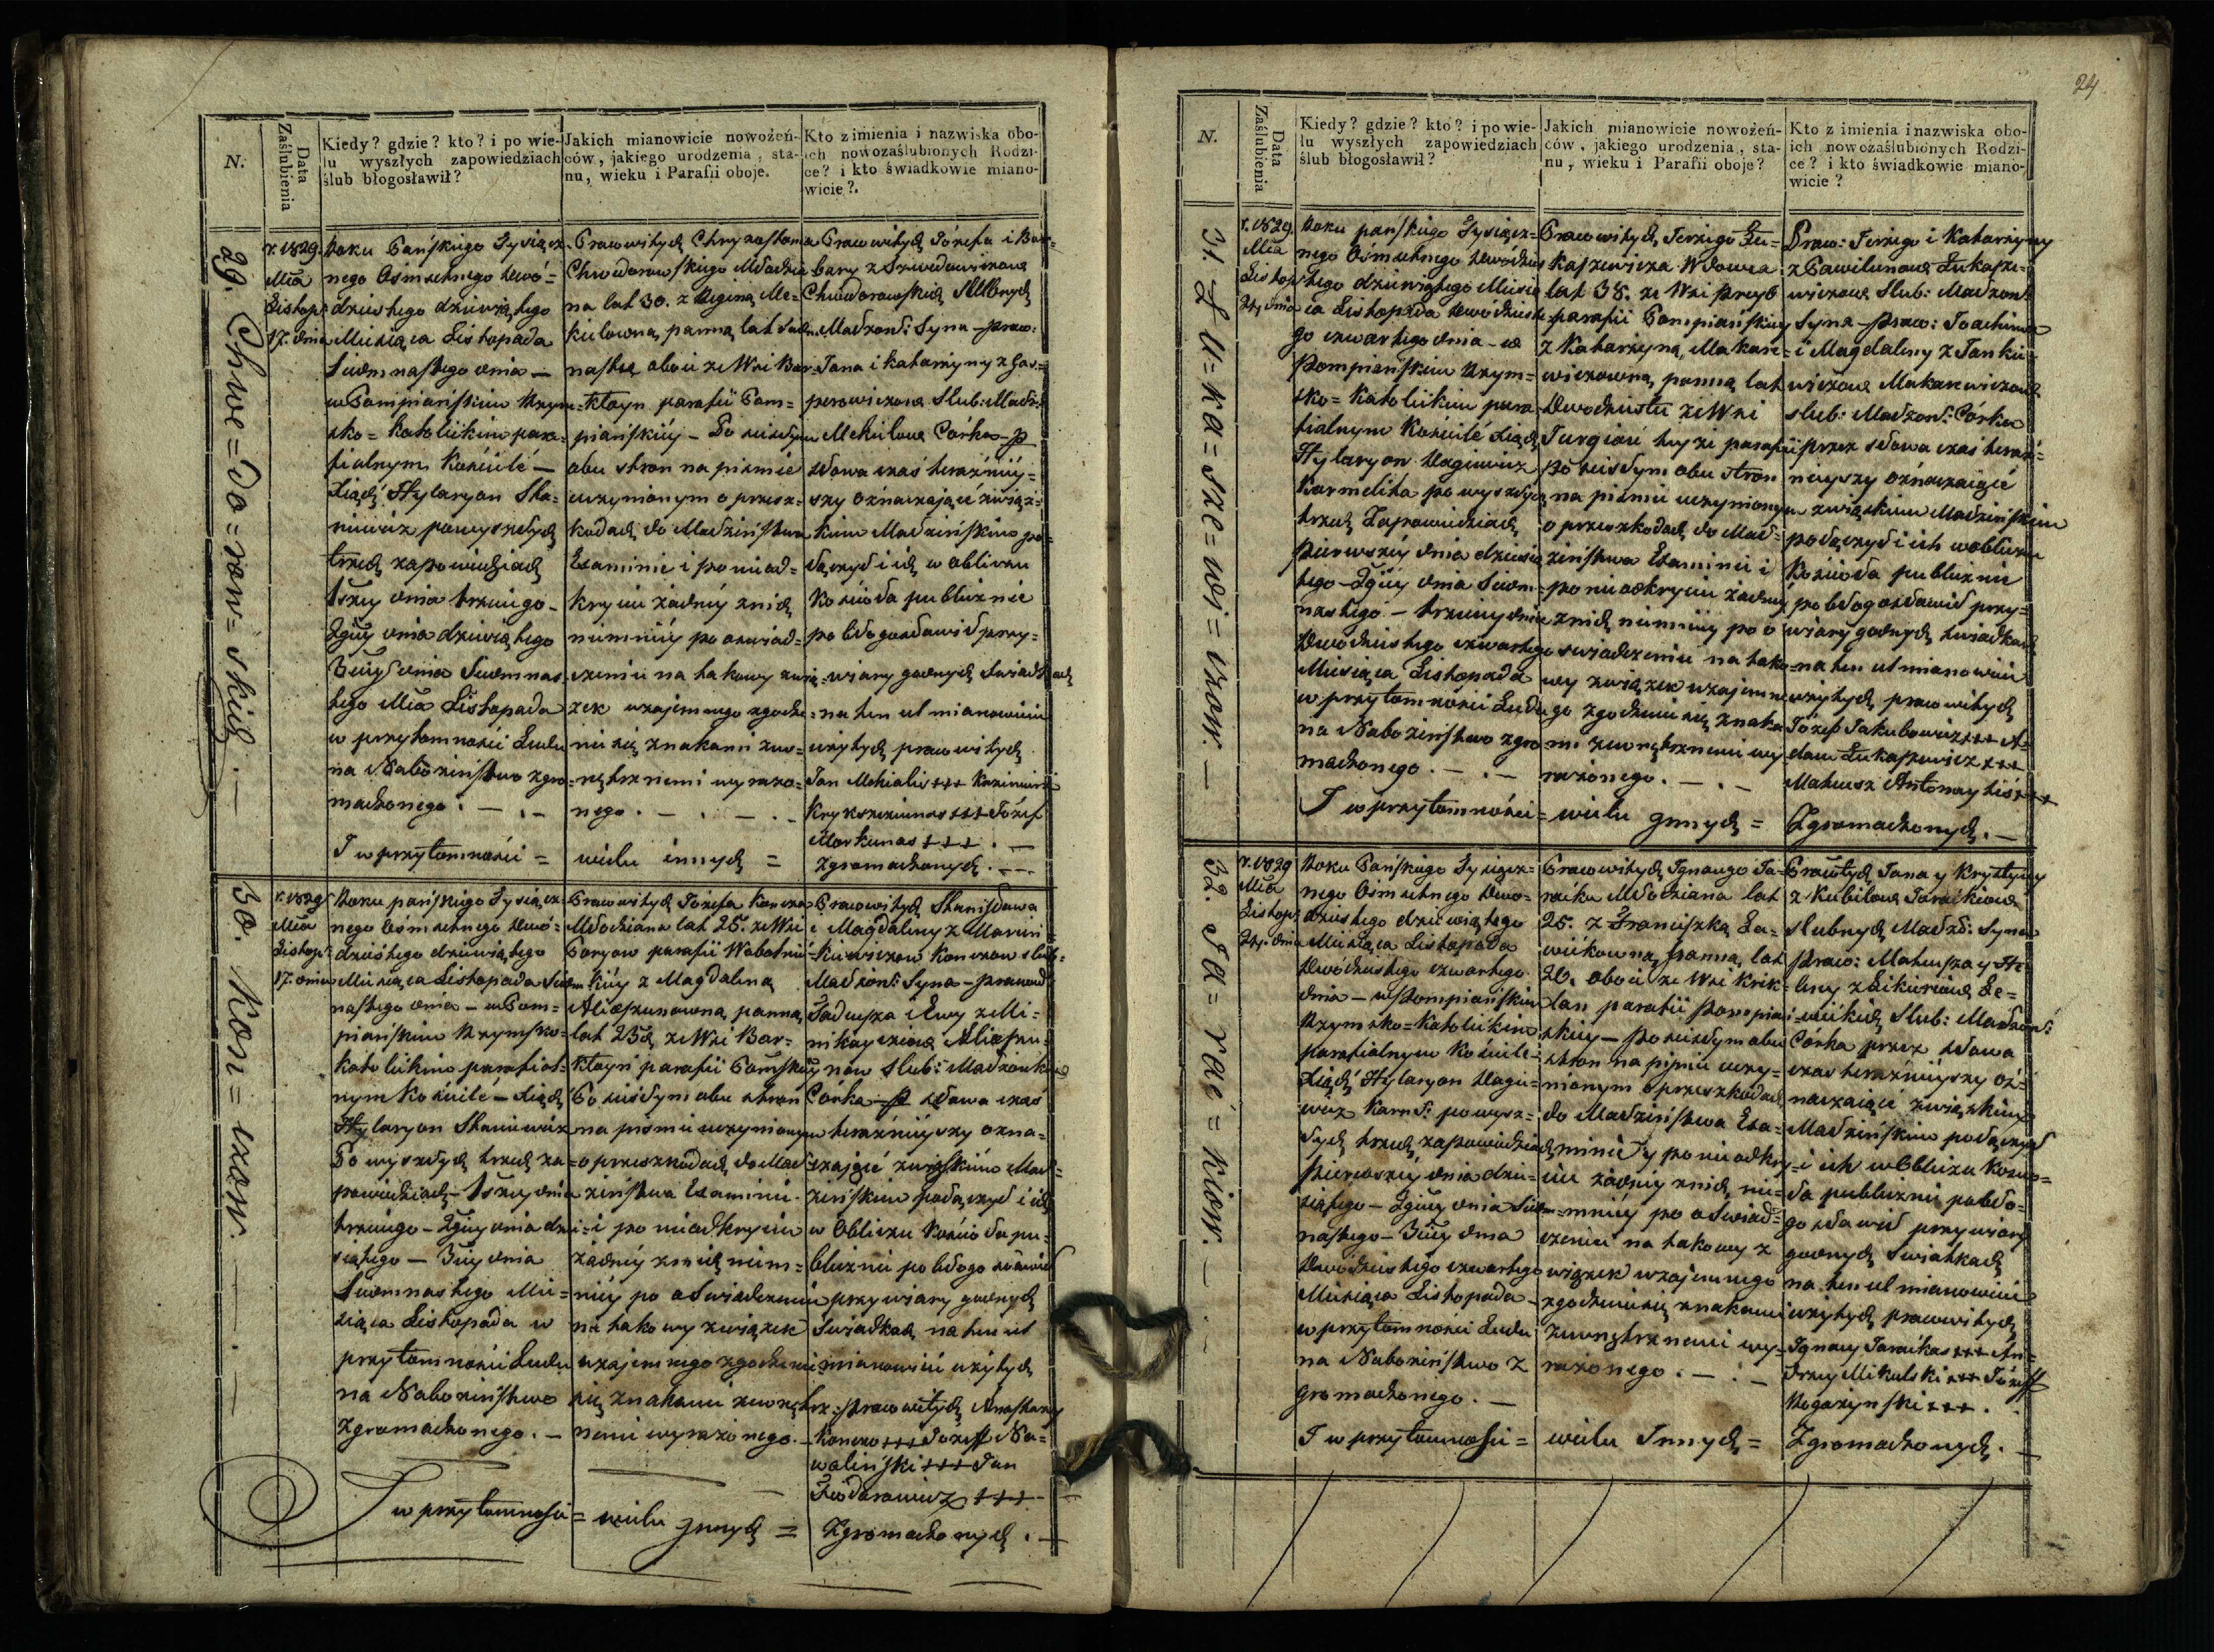 N.
Data Zaślubienia
Kiedy? gdzie? kto? i po wie-
lu wyszłych zapowiedziach
ślub błogosławił?
Jakich mianowicie nowożeń-
ców, jakiego urodzenia, sta-
nu, wieku i Parafii oboje.
Kto z imienia i nazwiska obo-
ich nowozaślubionych Rodzi-
ce? i kto świadkowie miano-
wicie?.
29. Chwe=do=row=skich.—
r. 1829.
Mca
Listop:
17. dnia
Roku Pańskiego Tysiącz-
nego Osmsetnego dwó=
dziestego dziewiątego
Miesiąca Listopada
Siedmnastego dnia —
w Pompiańskim Rzym=
sko=Katolickim para=
fialnym Kościele —
Xiądz Hylaryon Sta=
niewicz po wyszłych
trzech zapowiedziach
1szey dnia trzeciego —
2giey dnia dziewiątego
3ciey dnia Siedmnas=
tego Mca Listopada
w przytomności Ludu
na Nabożeństwo zgro=
madzonego. — . —
Pracowitych Chryzostoma
Chwedorowskiego Młodzie=
na lat 30. z Reginą Me=
kielowną, panną, lat siedm=
nastu oboie ze Wsi Bar=
ktayn parafii Pom=
piańskiey — Po ścisłym
obu stron na pismie
uczynionym o przesz=
kodach do Małżeństwa
Examinie i po nieod=
kryciu żadney z nich
niemniey po oświad=
czeniu na takowy zwią=
zek wzajemnego zgodze=
ni się znakami zew=
nętrznemi wyrażo=
nego. — . — . —
Pracowitych Józefa i Bar=
bary z Szwedowiczow
Chwedorowskich Ślubnych
Małżon: Syna — praw:
Jana i Katarzyny z Gas=
perowiczow Slub: Małż:
Mekielow Corka — p
słowa czas teraźniey=
szy oznaczające związ=
kiem Małżeńskim po=
łączył i ich w obliczu
Kościoła publicznie
pobłogosławił przy=
wiary godnych Świadkach
na ten cel mianowicie
użytych pracowitych
Jan Mekialis +++ Kazimierz
Krykszcziunas +++ Józef
Morkunas +++ . —
I w przytomności = wielu innych = Zgromadzonych. —
30. Kon=czow. — . —
r. 1829
Mca
Listop:
17. dnia
Roku pańskiego Tysiącz=
nego Osmsetnego dwó=
dziestego dziewiątego
Miesiąca Listopada Siedm=
nastego dnia — w Pom=
piańskim Rzymsko=
Katolickim parafial=
nym Kościele — Xiądz
Hylaryon Staniewicz
Po wyszłych trzech za=
powiedziach — 1szey dnia
trzeciego — 2giey dnia dzie=
wiątego — 3ciey dnia
Siedmnastego Mie=
siąca Listopada w
przytomności Ludu
na Nabożeństwo
zgromadzonego. —
Pracowitych Józefa Koncza
Młodziana lat 25. ze Wsi
Poryow parafii Wobolni=
kiey z Magdaleną
panną,
lat 23ch ze Wsi Bar=
ktayn parafii Pompskiey
Po ścisłym obu stron
na pismie uczynionym
o przeszkodach do Mał=
żeństwa Examinie
i po nieodkryciu
żadney z nich niem=
niey po oświadczeniu
na takowy związek
wzajemnego zgodzeni
się znakami zewnętrz=
nemi wyrażonego. —
Pracowitych Stanisława
i Magdaleny z Marcin
kiewiczow Konczow slub:
Małżon: Syna — pracow:
Tadeusza Ewy z Mi=
nikayciow
now Slub: Małżonkow
Córka — p słowa czas
teraznieyszy ozna=
czające związkiem Mał=
żeńskim połączył i ich
w Obliczu Kościoła pu=
blicznie pobłogosławił
przy wiary godnych
Świadkach na ten cel
mianowicie użytych
pracowitych Anastazy
Koncza +++ Jozeff No=
waliński +++ Jan
+++
I w przytomności = wielu Innych = Zgromadzonych. —
24
N.
Data Zaślubienia
Kiedy? gdzie? kto? i po wie-
lu wyszłych zapowiedziach
ślub błogosławił?
Jakich mianowicie nowożeń-
ców, jakiego urodzenia, sta-
nu, wieku i Parafii oboje?
Kto z imienia i nazwiska obo-
ich nowozaślubionych Rodzi-
ce? i kto świadkowie miano-
wicie?
31. Łu=ka=sze=wi=czow. —
r. 1829.
Mca
Listop
24. dnia
Roku pańskiego Tysiącz=
nego Osmsetnego dwódzies
tego dziewiątego Miesią
ca Listopada dwódzieste
go czwartego dnia — w
Pompiańskim Rzym=
sko=Katolickim para
fialnym Kościele Xiądz
Hylaryon Uagiewicz
Karmelita po wyszłych
trzech Zapowiedziach
Pierwszey dnia dziewią
tego — 2giey dnia Siedm=
nastego — trzeciey dnia
Dwódziestego czwartego
Miesiąca Listopada
w przytomności Ludu
na Nabożeństwo zgro
madzonego. — . —
Pracowitych Jerzego Łu=
kaszewicza Wdowca
lat 38. ze Wsi
parafii Pompiańskiey
z Katarzyną Makare=
wiczowną, panną lat
Dwódziestu ze Wsi
Jurgiańc teyże parafii
Po ścisłym obu stron
na pismie uczynionym
o przeszkodach do Mał=
żeństwa Examinie i
po nieodkryciu żadney
z nich niemniey po o
świadczeniu na tako=
wy związek wzajemne
go zgodzeni się znaka
mi zewnętrznemi wy
rażonego. — . —
Praw: Jerzego i Katarzyny
z Pawilunow Łukasze=
wiczow Slub: Małżon:
Syna — praw: Joachima
i Magdaleny z Janki=
wiczow Makarewiczow
slub: Małżon: Córka
przez słowa czas teraź=
nieyszy oznaczaiące
związkiem Małżeńskim
połączył i ich w obliczu
Kościoła publicznie
pobłogosławił przy=
wiary godnych świadkach
na ten cel mianowicie
użytych pracowitych
Józef Jakubowicz +++ A=
dam Łukaszewicz +++
Mateusz Antonaytis +++
I w przytomności = wielu Innych = Zgromadzonych. —
32. Ta=rać=kiow. —
r. 1829
Mca
Listop:
24. dnia
Roku Pańskiego Tysiącz=
nego Osmsetnego dwo=
dziestego dziewiątego
Miesiąca Listopada
Dwódziestego czwartego
dnia — w Pompiańskim
Rzymsko=Katolickim
parafialnym Kościele
Xiądz Hylaryon Uagie=
wicz Karmel: po wysz=
łych trzech zapowiedziach
pierwszey dnia dzie=
wiątego — 2giey dnia Siedm=
nastego — 3ciey dnia
Dwódziestego czwartego
Miesiąca Listopada
w przytomności Ludu
na Nabożeństwo z
gromadzonego. —
Pracowitych Ignacego Ta=
raćka Młodziana lat
25. z Franciszką Ła=
wiikowną, panną, lat
20. oboie ze Wsi Krik=
lan parafii Pompiań
skiey — po ścisłym obu
stron na piśmie uczy=
nionym o przeszkodach
do Małżeństwa Exa=
minie y po nieodkry=
ciu żadney z nich, nie=
mniey po oświad=
czeniu na takowy z
wiązek wzajemnego
zgodzeni się znakami
zewnętrznemi wy=
rażonego. — . —
Prawitych Jana y Krystyny
z Kubilow Taraćkiow
slubnych Małżo: Syna
praw: Mateusza y He=
leny
Slub: Małżon:
Córka przez słowa
czas teraznieyszy oz=
naczaiące związkiem
Małżeńskim połączył
i ich w Obliczu Koscio=
ła publicznie pobło=
gosławił przy wiary
godnych Świadkach
na ten cel mianowicie
użytych pracowitych
Ignacy Taraćkas +++ An=
drzey Mikulski +++ Józeff
Rogożyński +++.
I w przytomności = wielu Innych = Zgromadzonych. —